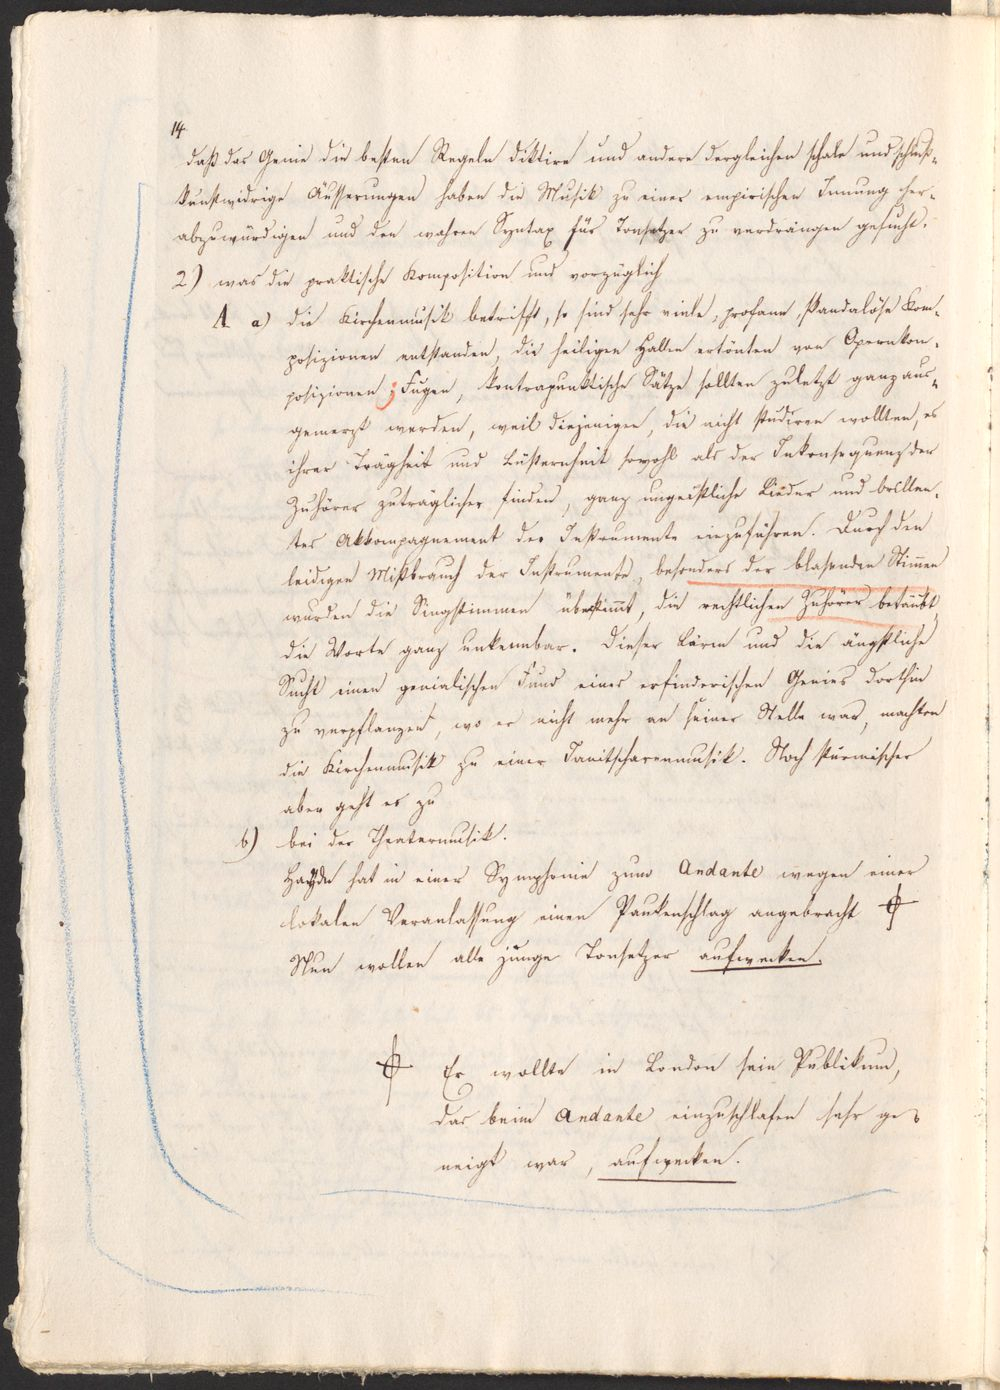 14
daß das Genie die besten Regeln diktire und andere dergleichen schale und
kunstwidrige Äusserungen haben die Musik zu einer empirischen Innung her-
abzuwürdigen und den wahren Syntax für Tonsetzer zu verdrängen gesucht.
2) was die praktische Komposition und vorzüglich
A a) die Kirchenmusik betrifft, so sind sehr viele, profane, skandalöse Kom-
posizionen entstanden, die heiligen Hallen ertönten von Opernkom-
posizionen; Fugen, kontrapunktische Sätze sollten zuletzt ganz aus-
gemerzt werden, weil diejenigen, die nicht studiren wollten, es
ihrer Trägheit und Lüsternheit sowohl als der Inkonsequenz der
Zuhörer zuträglicher finden, ganz ungeistliche Lieder und brillan-
tes Akkompagnement der Instrumente einzuführen. Durch den
leidigen Mißbrauch der Instrumente, besonders der blasenden Stimmen
wurden die Singstimmen überstimmt, die rechtlichen Zuhörer betäubt,
die Worte ganz unkennbar. Dieser Lärm und die ängstliche
Sucht einen genialischen Fund eines erfinderischen Genies dorthin
zu verpflanzen, wo er nicht mehr an seiner Stelle war, machten
die Kirchenmusik zu einer Janitscharenmusik. Noch stürmischer
aber geht es zu
b) bei der Theatermusik.
Haydn hat in einer Symphonie zum Andante wegen einer
lokalen Veranlassung einen Paukenschlag angebracht
Nun wollen alle junge Tonsetzer aufwecken.
Er wollte in London sein Publikum,
das beim Andante einzuschlafen sehr ge-
neigt war, aufwecken.